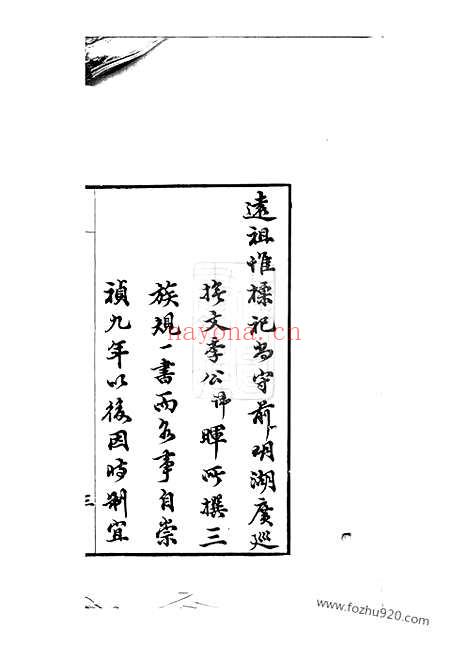 遠祖惟標祀尚守前明湖廣巡
按文孝公諱暉所撰三
族規一書而各事自崇
禎九年以後因時制宜
三
nayona.cn
www.fozhu920.com